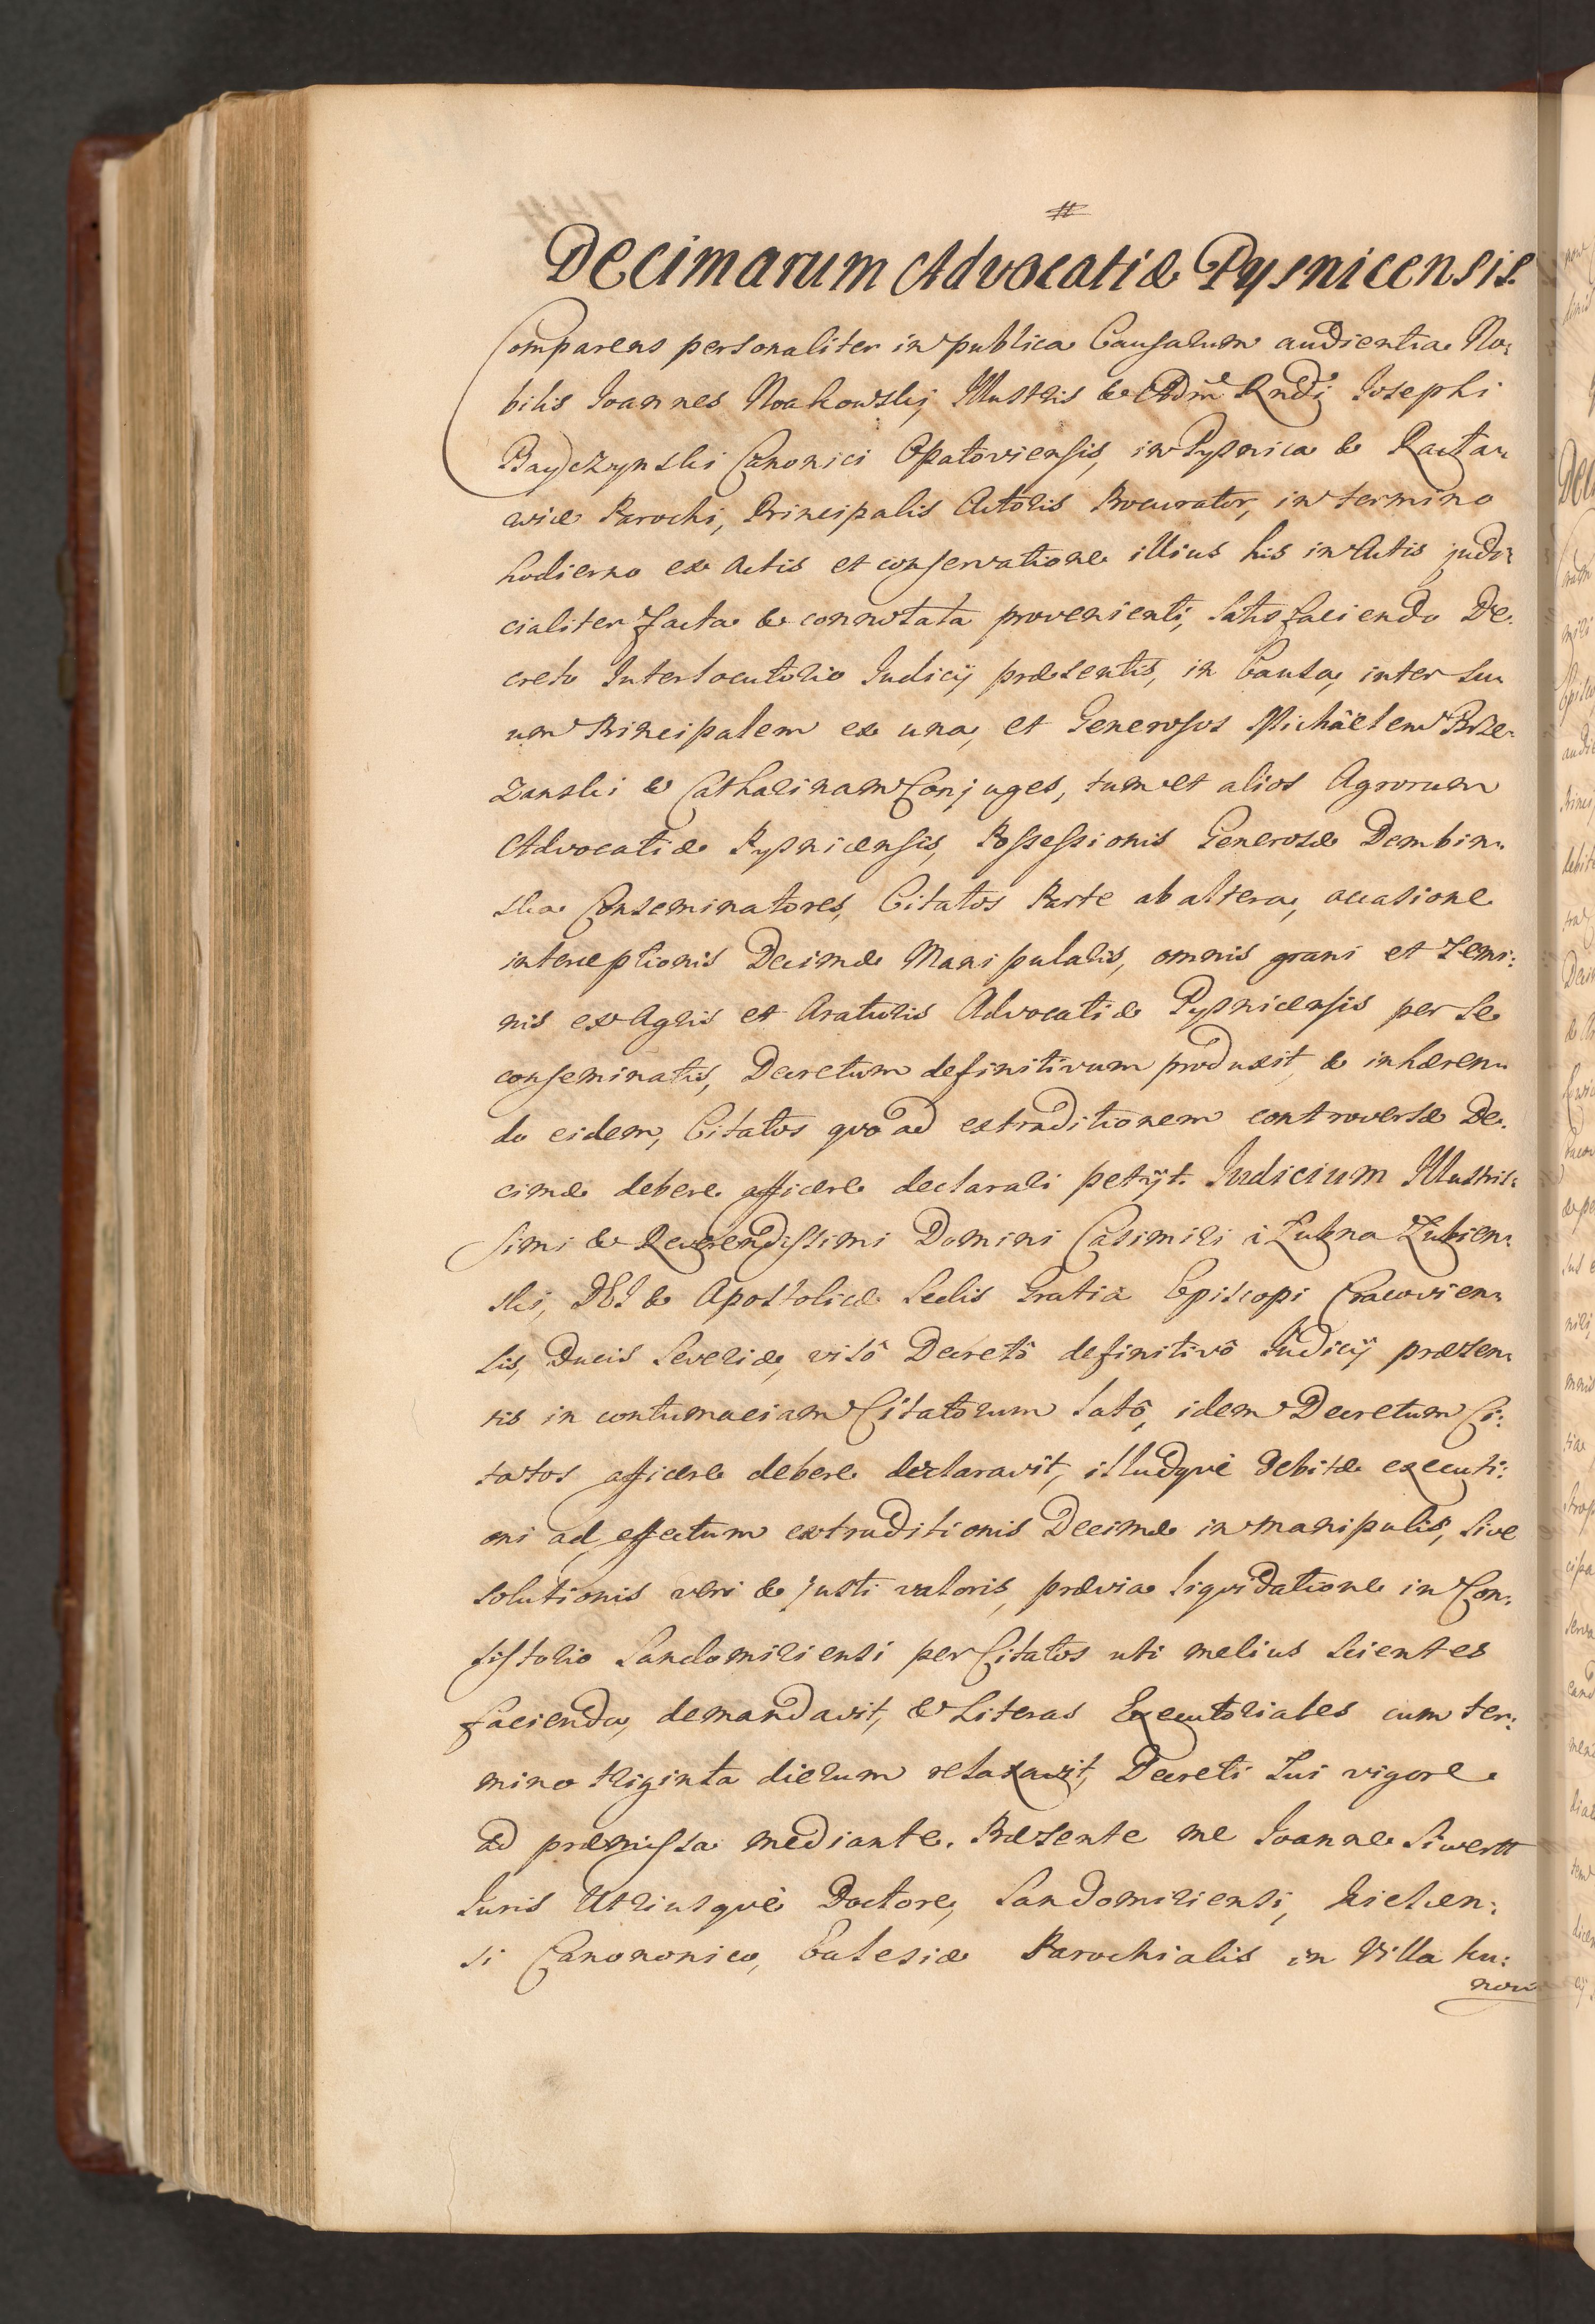 Decimarum Advocatiæ Pysnicensis.
Comparens personaliter in publica Causarum audientia No:
bilis Joannes Noakowskj Illustris & Admˢ Rndi Josephi
Bayczynski Canonici Opatoviensis, in Pysnica & Racta:
wice Parochi, Principalis Actoris Procurator, in termino
hodierno ex Actis et conservatione illius his in Actis judi:
cialiter facta & connotata provenienti, satisfaciendo De:
creto Interlocutorio Judicij præsentis, in Causa, inter su:
um Principalem ex una, et Generosos Michäelem Brze:
zanski & Catharinam Conjuges, tum et alios Agrorum
Advocatiæ Pysnicensis, Possessionis Generosæ Dembin:
ska Conseminatores, Citatos Parte ab altera, occasione
interceptionis Decimæ Manipularis, omnis grani et semi:
nis ex Agris et Araturis Advocatiæ Pysnicensis per se
conseminatis, Decretum definitivum produxit & inhæren:
do eidem, Citatos quo ad extraditionem controversæ De:
cimæ debere afficere declarari petijt. Judicium Illustris:
simi & Reverendissimi Domini Casimiri à Łubna Łubien:
ski, DEI & Apostolicæ Sedis Gratiâ Episcopi Cracovien:
sis, Ducis Severiæ, visô Decretô definitivô Judicij præsen:
tis in contumaciam Citatorum latô, idem Decretum Ci:
tatos afficere debere declaravit, illudquè debitæ executi:
oni ad effectum extraditionis Decimæ in manipulis, sive
solutionis veri & justi valoris, prævia liquidatione in Con:
sistorio Sandomiriensi per Citatos uti melius scientes
facienda, demandavit, & Literas Executoriales cum ter:
mino triginta dierum relaxavit, Decreti sui vigore
ad præmissa mediante. Præsente me Joanne Siwertt
Juris Utriusquè Doctore, Sandomiriensi, Kielcen:
si Canononico, Ecclesiæ Parochialis in Villa Ku: